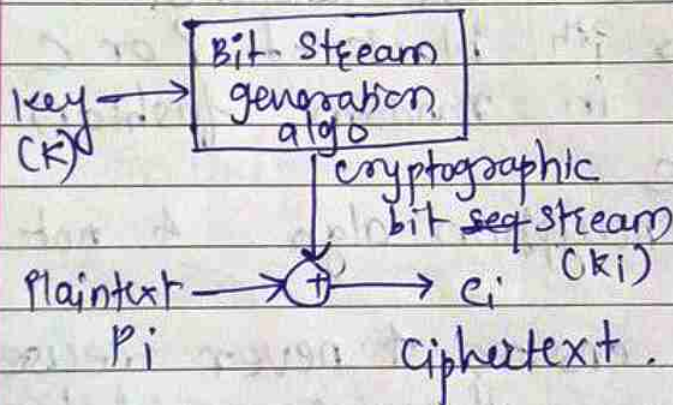 Bit Stream
generation
algo
Key
(K)
cryptographic
bit seq stream
(ki)
Plaintext
Pi
+
Ci
Ciphertext.